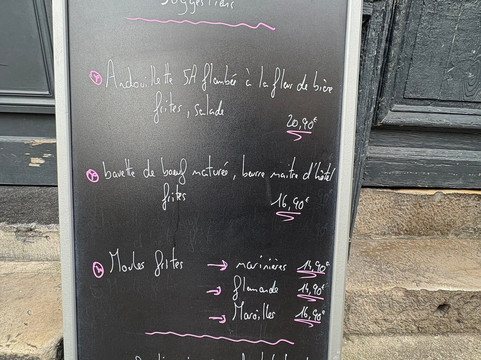 Suggestions
Andouillette 5A flambée à la fleur de bière
frites, salade
20,90€
bavette de boeuf maturés, beurre maitre d'hôtel
frites
16,90€
Moules frites → marinières 14,90€
→ flamande 14,90€
→ Maroilles 16,90€